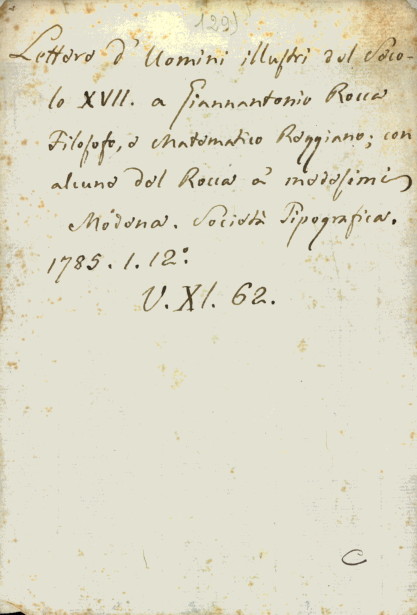 129)
Lettere d' Uomini illustri del Seco-
lo XVII. a Giannantonio Rocca
Filosofo, e Matematico Reggiano; con
alcune del Rocca a' medesimi
Modena. Società Tipografica.
1785. 1. 12.º
V. XI. 62.
C